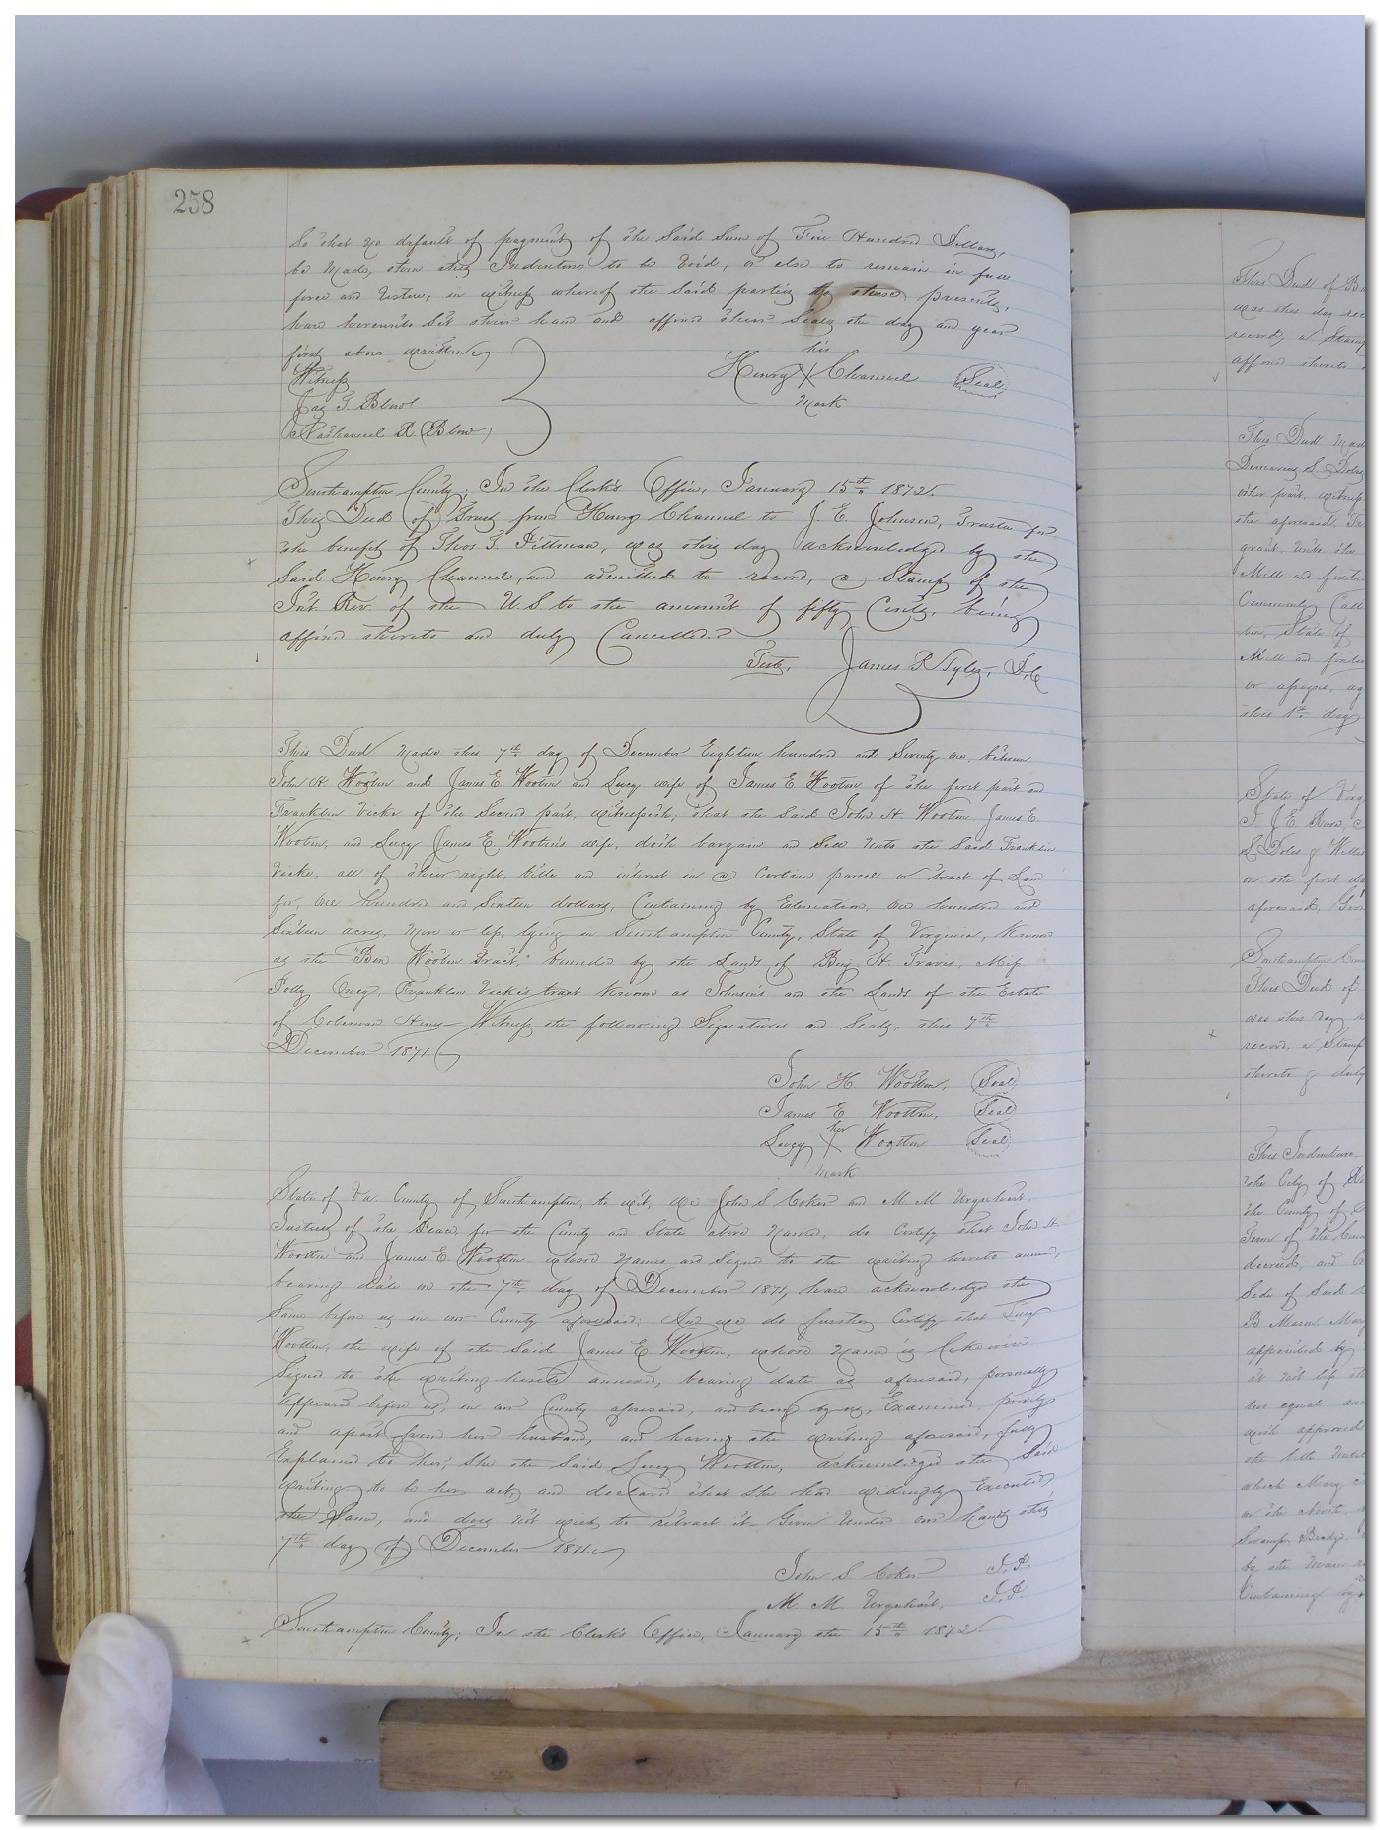 258
So that no default of payment of the Said Sum of Five Hundred Dollars,
be made, then this Indenture to be Void, or else to remain in full
force and Virtue; in witness whereof the Said parties to these presents,
have hereunto Set their hand and affixed their Seals the day and year
first above written
Witness
Jas T. Blow
Nathaniel R. Blow
his
Henry X Channel Seal
Mark
Southampton County; In the Clerk's Office, January 15th 1872.
This Deed of Trust from Henry Channel to J. E. Johnson, Trustee for
the benefit of Thos T. Pittman, was this day acknowledged by the
Said Henry Channel, and admitted to record, a Stamp of the
Int. Rev. of the U.S to the amount of fifty Cents, being
affixed thereto and duly Cancelled
Teste, James R Tyler, D.C
This Deed made this 7th day of December Eighteen hundred and Seventy one, between
John H. Wootten and James E. Wootten and Lucy wife of James E Wootten of the first part and
Franklin Vicks of the Second part, witnesseth; that the Said John H Wootten, James E.
Wootten, and Lucy James E. Wootten's wife, doth bargain and Sell Unto the Said Franklin
Vicks, all of their right, title and interest in a Certain parcel or tract of Land
for, One hundred and Sixteen dollars, Containing by Estimation, One hundred and
Sixteen acres, More or less, lying in Southampton County, State of Virginia, Known
as the "Ben Wootten Tract," bounded by the Lands of Benj. H. Travis, Miss
Polly Turner, Franklin Vick's tract Known as Johnson's and the Lands of the Estate
of Coleman Hines Witness the following Signatures and Seals, this 7th
December 1871
John H. Wootten, Seal
James E Wootten, Seal
her
Lucy X Wootten Seal
Mark
State of Va. County of Southampton, to wit, We John S Coker and M M Urquhart
Justices of the Peace, for the County and State above Named, do Certify that John H
Wootten and James E. Wootten whose Names are Signed to the writing hereto annexed,
bearing date on the 7th day of December 1871, have acknowledged the
Same before us in our County aforesaid; And we do further Certify that Lucy
Wootten, the wife of the Said James E Wootten, whose Name is likewise
Signed to the writing hereto annexed, bearing date as aforesaid, personally
Appeared before us, in our County aforesaid, and being by us, Examined, privily
and apart from her husband, and having the writing aforesaid, fully
Explained to her, She the Said Lucy Wootten, acknowledged the Said
writing to be her act, and declared that She had willingly Executed
the Same, and does Not wish to retract it. Given Under our hands this
7th day of December 1871
John S Coker J.P.
M. M. Urquhart, J.P.
Southampton County; In the Clerk's Office, January the 15th 1872
This Deed of
was this day
record, a Stamp
affixed thereto
This Deed
other part, witness
the aforesaid
grant Unto the
Mill and
State of
Mill and
or assigns,
this 1st day
State of Virg
I J. E.
on the first
aforesaid,
Southampton
This Deed of
was this day
record, a Stamp
thereto & duly
This Indenture
the City of
the County of
Term of the
decreed, and
Side of Said
B Mason
appointed by
it not
two equal
with approved
which
on the North
Swamp Bridge
by the
Containing by